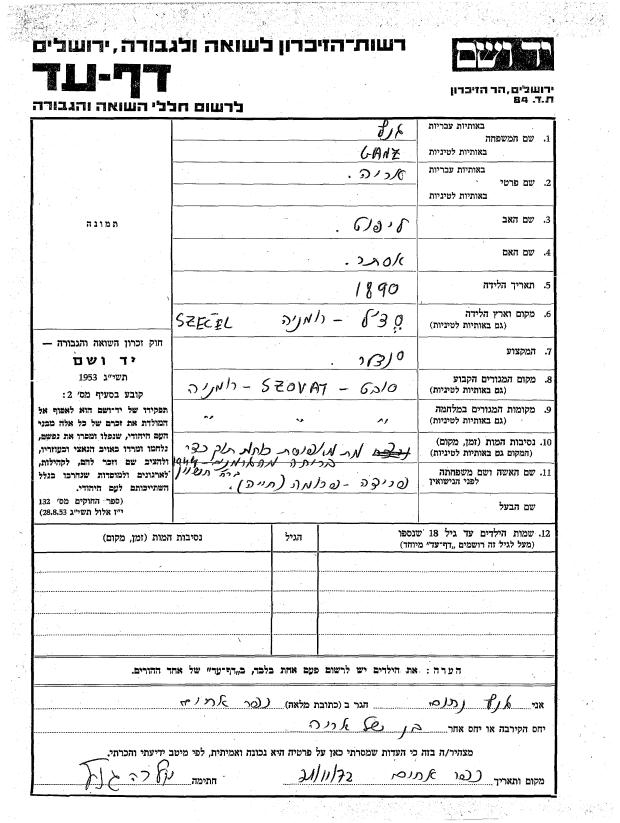 רשות-הזיכרון לשואה ולגבורה, ירושלים
יד ושם
דף-עד
ירושלים, הר הזיכרון
ת.ד. 84
לרשום חללי השואה והגבורה
תמונה
1. שם המשפחה
באותיות עבריות גנץ
באותיות לטיניות GANZ
2. שם פרטי
באותיות עבריות אריה.
באותיות לטיניות
3. שם האב ליפוט.
4. שם האם אסתר.
5. תאריך הלידה 1890
6. מקום וארץ הלידה
(גם באותיות לטיניות)
רומניה SZECEL
7. המקצוע סנדלר.
8. מקום המגורים הקבוע
(גם באותיות לטיניות)
סובט - SZOVAT - רומניה
9. מקומות המגורים במלחמה
(גם באותיות לטיניות)
״ ״
10. נסיבות המות (זמן, מקום)
(המקום גם באותיות לטיניות)
מת תוך כדי
1944
11. שם האשה ושם משפחתה
לפני הנישואין
פרידה - פרומה (חייה).
שם הבעל
חוק זכרון השואה והגבורה —
יד ושם
תשי״ג 1953
קובע בסעיף מס׳ 2:
תפקידו של יד-ושם הוא לאסוף אל
המולדת את זכרם של כל אלה מבני
העם היהודי, שנפלו ומסרו את נפשם,
נלחמו ומרדו באויב הנאצי ובעוזריו,
ולהציב שם וזכר להם, לקהילות,
לארגונים ולמוסדות שנחרבו בגלל
השתייכותם לעם היהודי.
(ספר החוקים מס׳ 132
י״ז אלול תשי״ג 28.8.53)
12. שמות הילדים עד גיל 18 שנספו
(מעל לגיל זה רושמים „דף-עד״ מיוחד)
הגיל
נסיבות המות (זמן, מקום)
הערה: את הילדים יש לרשום פעם אחת בלבד, ב„דף-עד״ של אחד ההורים.
אני גנץ נחום הגר ב (כתובת מלאה) כפר אחים
יחס הקירבה או יחס אחר בן של אריה
מצהיר/ה בזה כי העדות שמסרתי כאן על פרטיה היא נכונה ואמיתית, לפי מיטב ידיעתי והכרתי.
מקום ותאריך כפר אחים 21/11/72 חתימה